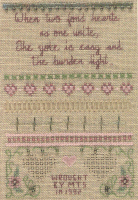 When two fond hearts
as one unite,
The yoke is easy and
the burden light.
WROUGHT
BY MTS
IN 1992